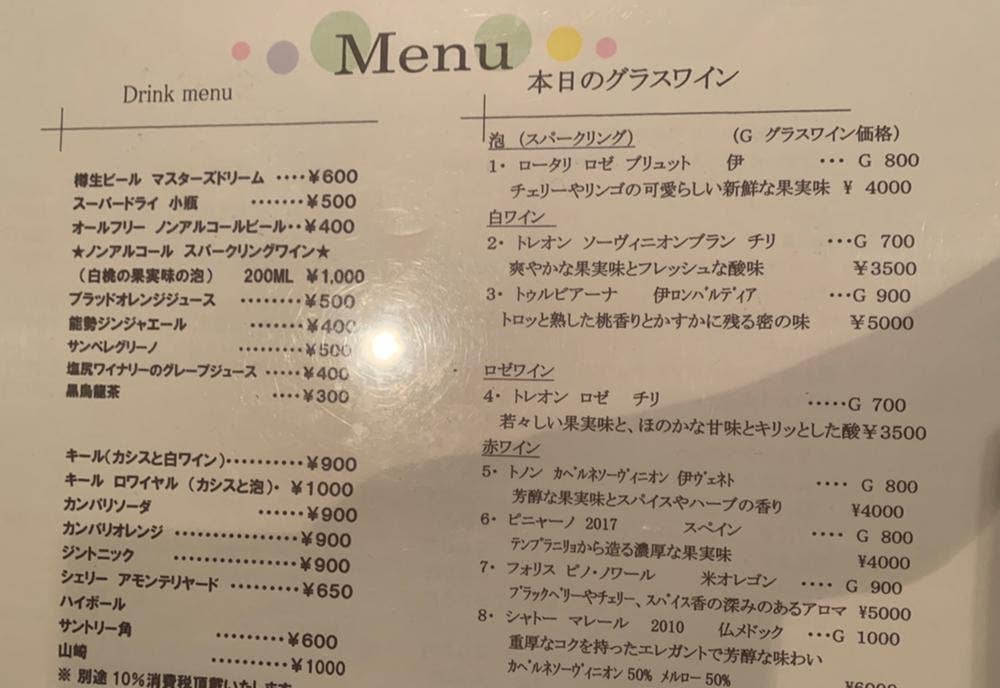 Menu
Drink menu
樽生ビール マスターズドリーム ････¥600
スーパードライ 小瓶 ･･･････¥500
オールフリー ノンアルコールビール･･¥400
★ノンアルコール スパークリングワイン★
（白桃の果実味の泡） 200ML ¥1,000
ブラッドオレンジジュース ････････¥500
能勢ジンジャエール ･･･････¥400
サンペレグリーノ ･････････¥500
塩尻ワイナリーのグレープジュース ･････¥400
黒烏龍茶 ････¥300
キール(カシスと白ワイン)･･････････¥900
キール ロワイヤル （カシスと泡）･ ¥1000
カンパリソーダ ･･････¥900
カンパリオレンジ ･･････････････¥900
ジントニック ･･････････････¥900
シェリー アモンテリヤード ････････¥650
ハイボール
サントリー角 ･････････¥600
山崎 ･････････¥1000
※ 別途 10%消費税頂戴いたします
本日のグラスワイン
泡 (スパークリング) (G グラスワイン価格)
1・ ロータリ ロゼ ブリュット 伊 ･･･ G 800
チェリーやリンゴの可愛らしい新鮮な果実味 ¥ 4000
白ワイン
2・ トレオン ソーヴィニオンブラン チリ ･･･G 700
爽やかな果実味とフレッシュな酸味 ¥3500
3・ トゥルビアーナ 伊ロンバルディア ･･･G 900
トロッと熟した桃香りとかすかに残る密の味 ¥5000
ロゼワイン
4・ トレオン ロゼ チリ ･････G 700
若々しい果実味と、ほのかな甘味とキリッとした酸¥3500
赤ワイン
5・ トノン カベルネソーヴィニオン 伊ヴェネト ････ G 800
芳醇な果実味とスパイスやハーブの香り ¥4000
6・ ピニャーノ 2017 スペイン ････ G 800
テンプラニリョから造る濃厚な果実味 ¥4000
7・ フォリス ピノ・ノワール 米オレゴン ････ G 900
ブラックベリーやチェリー、スパイス香の深みのあるアロマ ¥5000
8・ シャトー マレール 2010 仏メドック ･･･G 1000
重厚なコクを持ったエレガントで芳醇な味わい
カベルネソーヴィニオン 50% メルロー 50%
¥6000